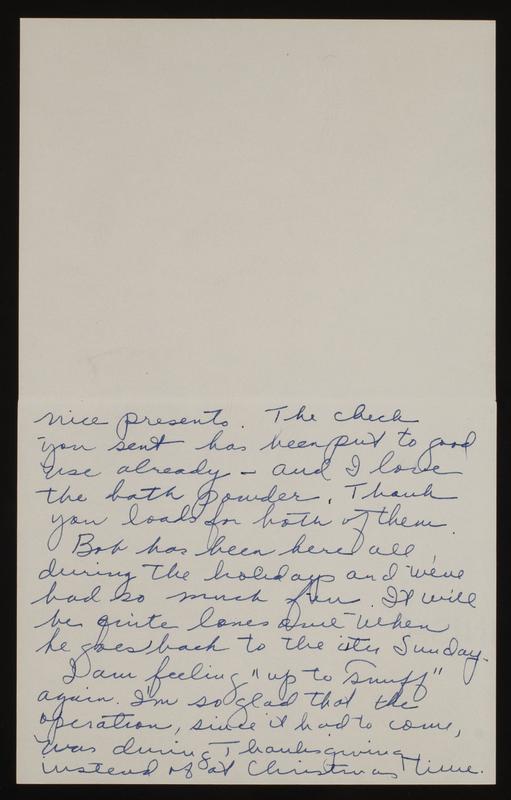 nice presents. The check
you sent has been put to good
use already - and I love
the bath powder. Thank
you loads for both of them.
Bob has been here all
during the holidays and we've
had so much fun. It will
be quite lonesome when
he goes back to the city Sunday.
I am feeling "up to snuff"
again. I'm so glad that the
operation, since it had to come,
was during Thanksgiving
instead of at Christmas time.